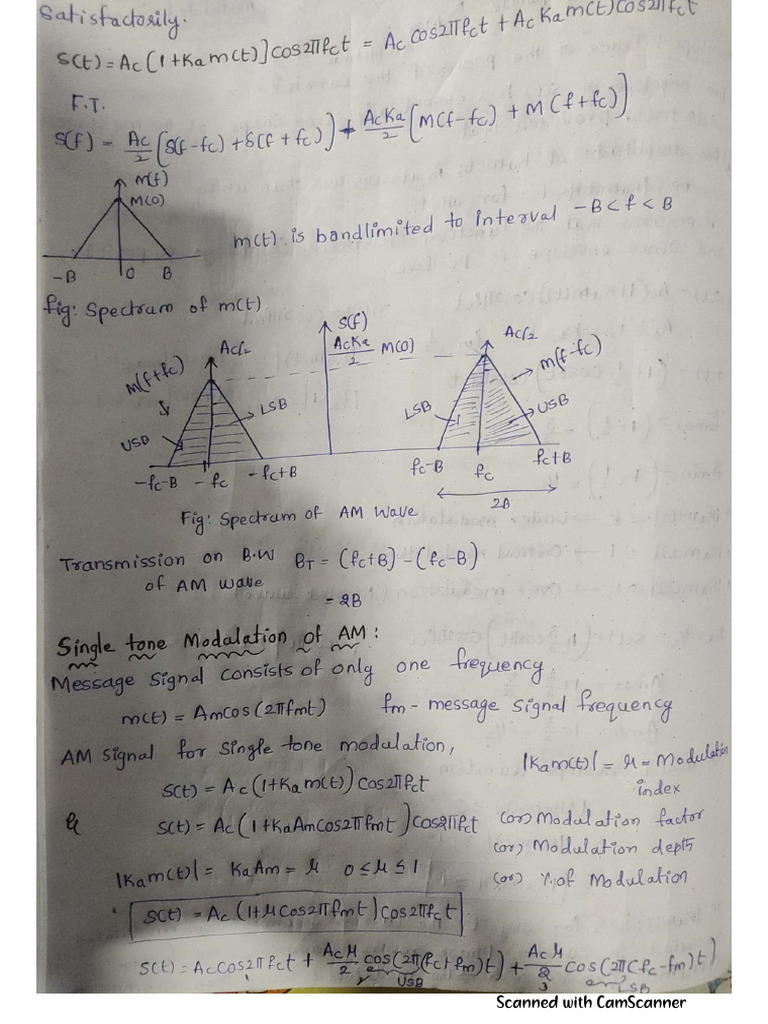 Satisfactorily.
S(t) = Ac(1+Kam(t)]cos2πfct = Ac cos2πfct + AcKam(t)cos2πfct
F.T.
S(f) = Ac/2 (δ(f-fc) + δ(f+fc)) + AcKa/2 (M(f-fc) + M(f+fc))
M(f)
M(0)
m(t) is bandlimited to interval -B<f<B
-B 0 B
fig: Spectrum of m(t)
S(f)
Ac/2 AcKa/2 M(0) Ac/2
M(f+fc) M(f-fc)
USB LSB LSB USB
-fc-B -fc -fc+B fc-B fc fc+B
2B
Fig: Spectrum of AM wave
Transmission on B.W BT = (fc+B) - (fc-B)
of AM wave
= 2B
Single tone Modalation of AM:
Message Signal consists of only one frequency.
m(t) = Amcos(2πfmt) fm - message signal frequency
AM signal for single tone modulation,
|Kam(t)| = μ = Modulation
index
S(t) = Ac(1+Kam(t))cos2πfct
S(t) = Ac(1+KaAmcos2πfmt)cos2πfct (or) Modulation factor
(or) Modulation depth
|Kam(t)| = KaAm = μ 0≤μ≤1
(or) % of Modulation
S(t) = Ac(1+μcos2πfmt)cos2πfct
S(t) = Accos2πfct + Acμ/2 cos(2π(fc+fm)t) + Acμ/2 cos(2π(fc-fm)t)
1 2 USB 3 LSB
Scanned with CamScanner